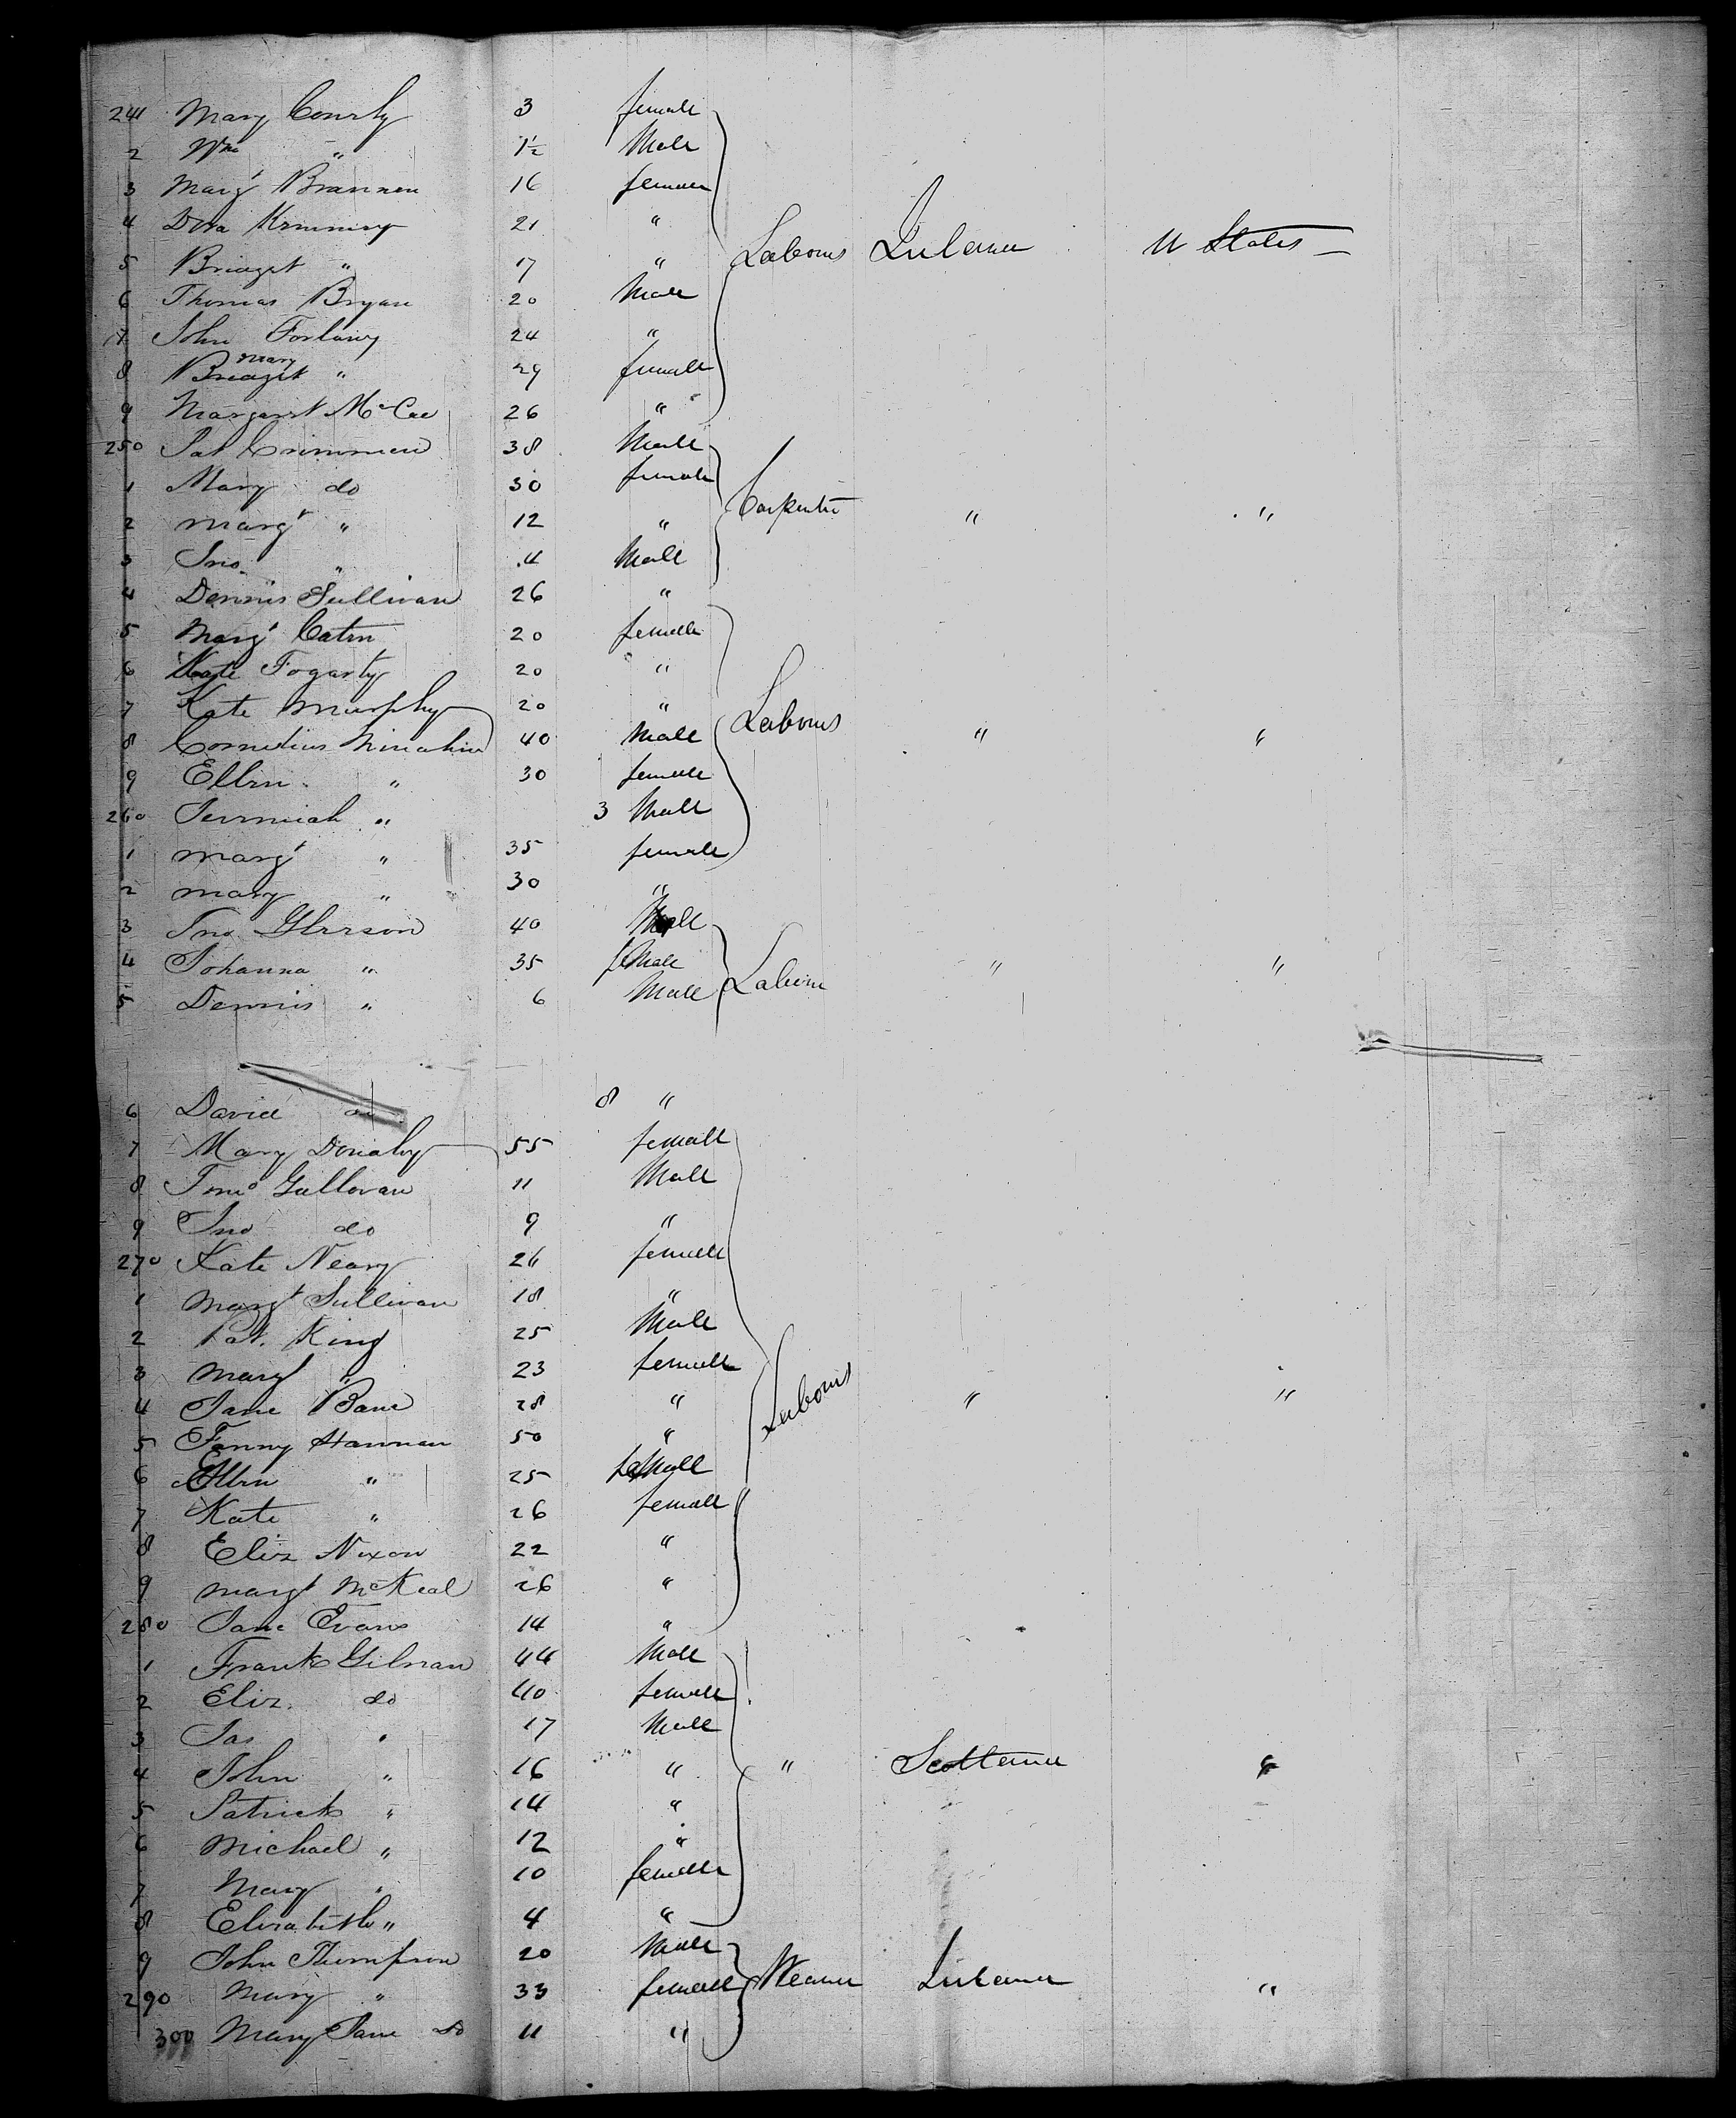 241 Mary Courly 3 female
2 Wm " 1½ Male
3 Margt Brannen 16 female
4 Dora 21 "
5 Bridget " 17 " Labours Ireland U States
6 Thomas Bryan 20 Male
7 John 24 "
8 Bridget mary " 29 female
9 Margaret McCae 26 "
250 Pat Crimmen 38 Male
1 Mary do 30 female
2 margt " 12 " Carpenter " "
3 Jno. " 4 Male
4 Dennis Sullivan 26 "
5 Margt 20 female
6 Kate Fogarty 20 "
7 Kate Murphy 20 " Labours
8 Cornelius 40 Male " "
9 Ellen " 30 female
260 Jermiah " 3 Male
1 margt " 35 female
2 mary " 30 "
3 Jno Glesson 40 Male
4 Johanna " 35 feMale " "
5 Dennis " 6 Male Labour
6 David do 8 "
7 Mary Donahy 55 female
8 Gullovan 11 Male
9 Jno do 9 "
270 Kate Neary 26 female
1 Margt Sullivan 18 "
2 Pat. King 25 Male
3 mary " 23 female
4 Jane Bane 28 " Labours " "
5 Fanny Hannan 50 "
6 Ellen " 25 feMale
7 Kate " 26 female
8 Eliz Nixon 22 "
9 margt McKeal 26 "
280 Jane Evans 14 "
1 Frank Gilnan 44 Male
2 Eliz. do 40 female
3 Jas " 17 Male
4 John " 16 " " Scotland "
5 Patrick " 14 "
6 Michael " 12 "
7 Mary " 10 female
8 Elizabeth " 4 "
9 John Thompson 20 Male
290 Mary " 33 female Weaver Ireland "
300 Mary Jane do 11 "